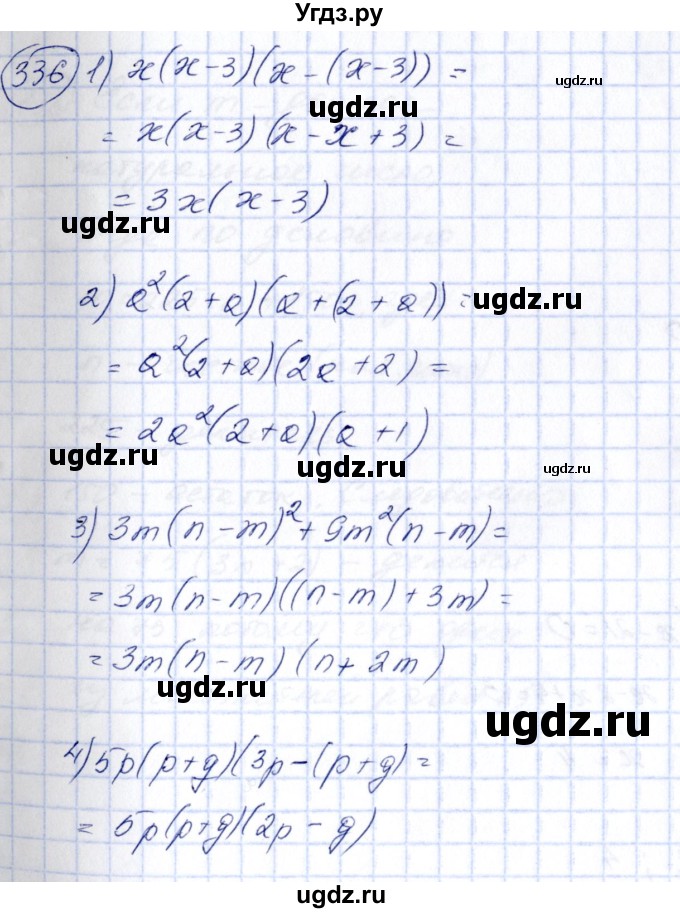 Угдз.ру
336 1) x(x-3)(x-(x-3)) =
= x(x-3)(x-x+3) =
= 3x(x-3)
2) a²(2+a)(a+(2+a)) =
= a²(2+a)(2a+2) =
= 2a²(2+a)(a+1)
3) 3m(n-m)² + 9m²(n-m) =
= 3m(n-m)((n-m)+3m) =
= 3m(n-m)(n+2m)
4) 5p(p+g)(3p-(p+g) =
= 5p(p+g)(2p-g)
ugdz.ru
ugdz.ru
ugdz.ru
ugdz.ru
ugdz.ru
ugdz.ru
ugdz.ru
ugdz.ru
ugdz.ru
ugdz.ru
ugdz.ru
ugdz.ru